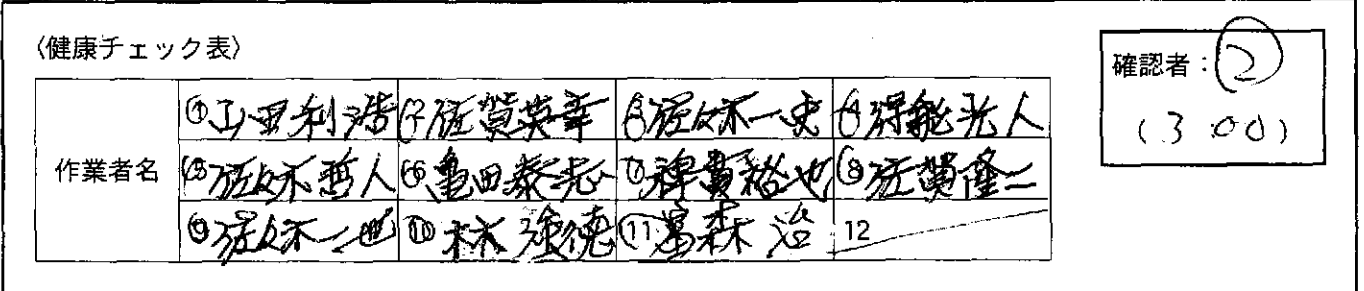 〈健康チェック表〉
確認者：②
(3:00)
作業者名
①山田利浩 ②佐賀英幸 ③佐々木一史 ④得能光人
⑤佐々木哲人 ⑥亀田泰志 ⑦裕也 ⑧佐賀隆二
⑨佐々木一也 ⑩林強徳 ⑪富森治 12